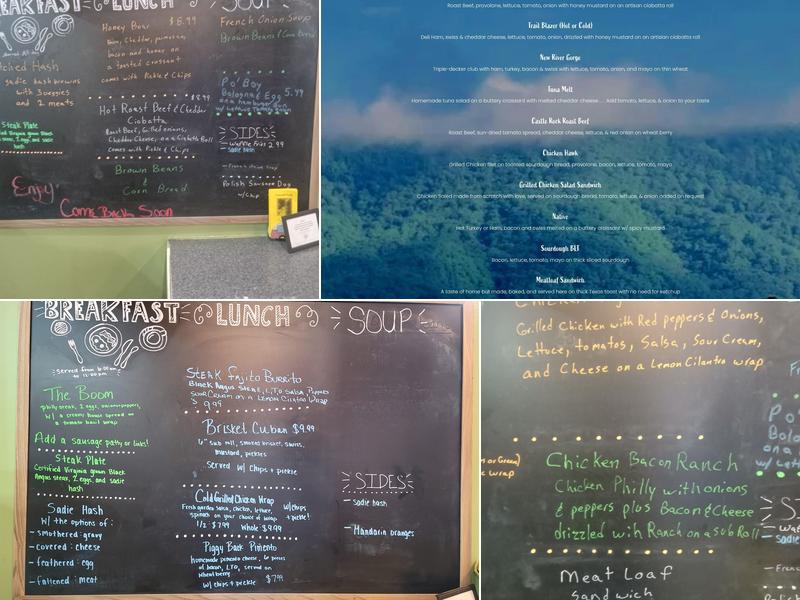 BREAKFAST LUNCH
Honey Bear $8.99
Ham, Cheddar, parmesan,
bacon and honey on
a toasted croissant
comes with Pickle & Chips
Hash
sadie hashbrowns
with 3 veggies
and 2 meats
Steak Plate
hash
$8.99
Hot Roast Beef & Cheddar
Ciabatta
Roast Beef, Grilled onions,
Cheddar Cheese, on a Ciabatta Roll
Comes with Pickle & Chips
Brown Beans
&
Corn Bread
Enjoy
Come Back Soon
French Onion Soup
Brown Beans & Corn Bread
Po' Boy
Bologna & Egg 5.99
on a hamburger Bun
w/ Lettuce Tomato
SIDES
Waffle Fries 2.99
sadie hash
Polish Sausage Dog
w/ Chip
Roast Beef, provolone, lettuce, tomato, onion with honey mustard on an artisan ciabatta roll
Trail Blazer (Hot or Cold)
Deli Ham, swiss & cheddar cheese, lettuce, tomato, onion, drizzled with honey mustard on an artisan ciabatta roll
New River Gorge
Triple-decker club with ham, turkey, bacon & swiss with lettuce, tomato, onion, and mayo on thin wheat
Tuna Melt
Homemade tuna salad on a buttery croissant with melted cheddar cheese... Add tomato, lettuce, & onion to your taste
Castle Rock Roast Beef
Roast Beef, sun-dried tomato spread, cheddar cheese, lettuce, & red onion on wheat berry
Chicken Hawk
Grilled Chicken filet on toasted sourdough bread, provolone, bacon, lettuce, tomato, mayo
Grilled Chicken Salad Sandwich
Chicken Salad made from scratch with love, served on sourdough bread, tomato, lettuce, & onion added on request
Native
Hot Turkey or Ham, bacon and swiss melted on a buttery croissant w/ spicy mustard
Sourdough BLT
Bacon, lettuce, tomato, mayo on thick sliced sourdough
Meatloaf Sandwich
A taste of home but made, baked, and served here on thick Texas toast with no need for ketchup
BREAKFAST LUNCH SOUP
Served from 8:00am
to 11:00am
The Boom
philly steak, 2 eggs, onions+peppers,
w/ a creamy house spread on
a tomato basil wrap
Add a sausage patty or links!
Steak Plate
Certified Virginia grown Black
Angus steak, 2 eggs, and sadie
hash
Sadie Hash
w/ the options of:
- smothered: gravy
- covered: cheese
- feathered: egg
- fattened: meat
Steak Fajita Burrito
Black Angus Steak, L,T,O, Salsa, Peppers
Sour Cream on a Lemon Cilantro Wrap
$9.99
Brisket Cuban $9.99
6" sub roll, smoked brisket, swiss,
mustard, pickles
Served w/ chips + pickle
Cold Grilled Chicken Wrap w/chips
Fresh garden salsa, chicken, lettuce, + pickle!
spinach on your choice of wrap
1/2: $7.99 Whole: $9.99
Piggy Back Pimento
homemade pimento cheese, 6 pieces
of bacon, LTO, served on
wheatberry
w/ chips + pickle $7.99
SIDES
- sadie hash
- Mandarin oranges
Grilled Chicken with Red peppers & Onions,
Lettuce, tomatos, Salsa, Sour Cream,
and Cheese on a Lemon Cilantro wrap
or Green)
Chicken Bacon Ranch
Chicken Philly with onions
& peppers plus Bacon & Cheese
drizzled with Ranch on a sub Roll
Meat Loaf
Sandwich